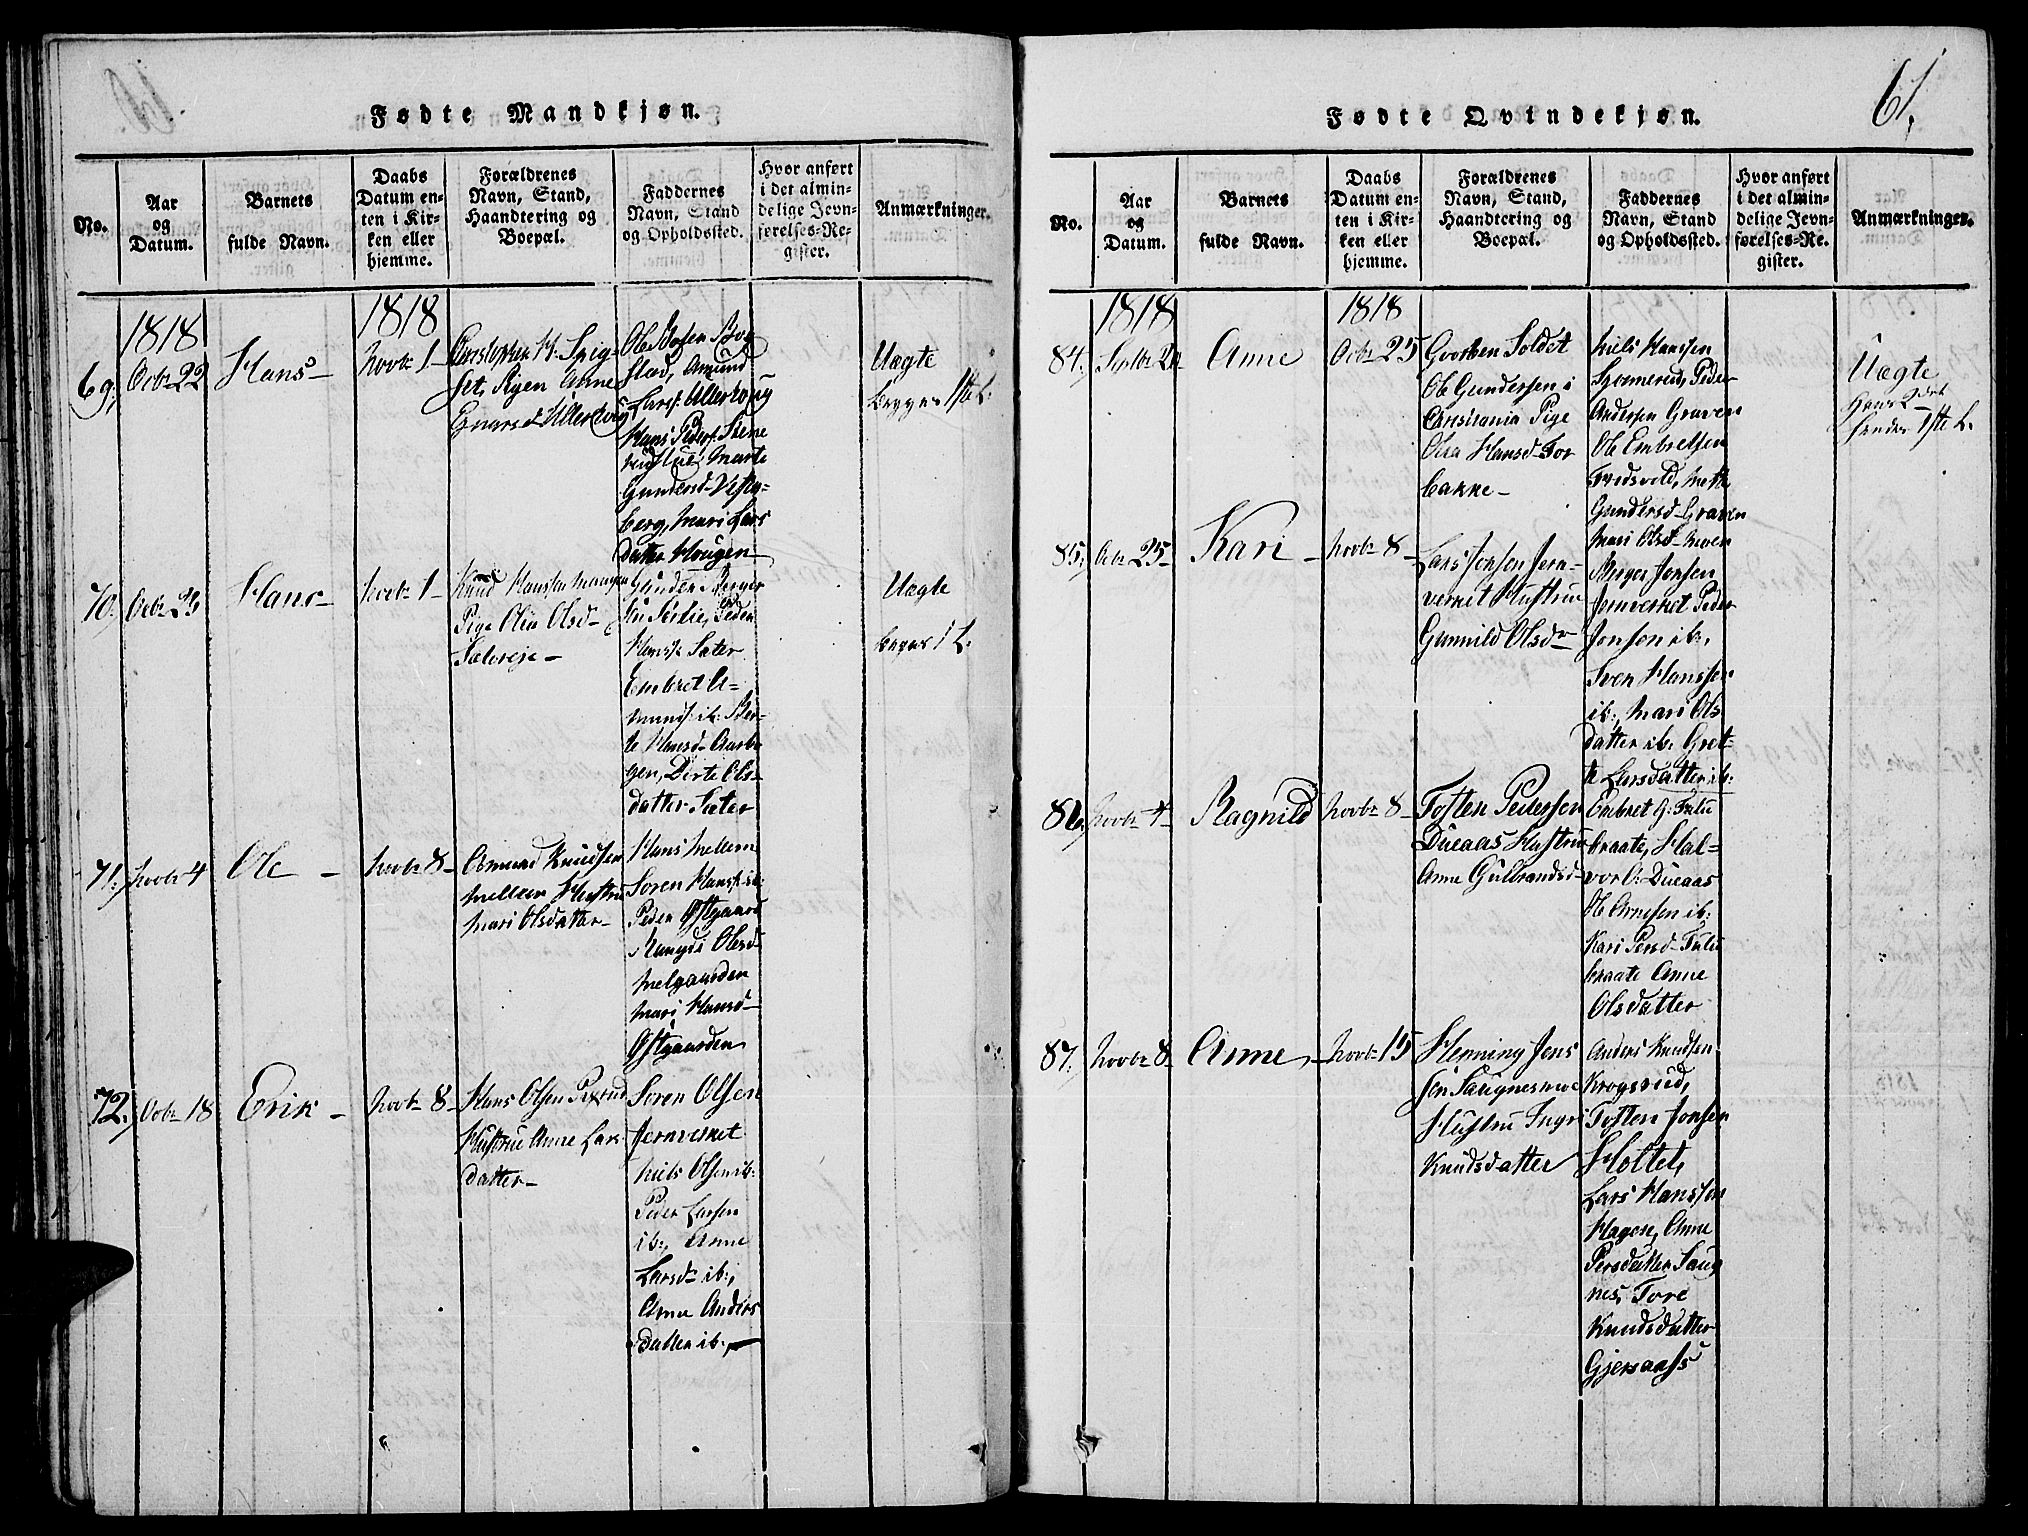 Fødte Mandkjøn.
No.
Aar
og
Datum.
Barnets
fulde Navn.
Daabs
Datum en-
ten i Kir-
ken eller
hjemme.
Forældrenes
Navn, Stand,
Haandtering og
Boepæl.
Faddernes
Navn, Stand
og Opholdssted.
Hvor anført
i det almin-
delige Jevn-
førelses-Re-
gister.
Anmærkninger.
69.
1818
Octbr 22
Hans
1818
Novbr 1
Christopher H.
Ryen Anne
Olle Boesen
Amund
Hans Peders.
Marte
Gundersd.
berg, Mari Lars
datter Hougen
Uægte
begges 1ste L.
70.
Octbr 23
Hans
Novbr 1
Knud Hansen
Pige Olia Olsd
Gunder Berger
Peder
Hanss. Sæter
Embret A-
munds. ib. Ber-
te Hansd
gen, Dorte Ols-
datter Sæter
Uægte
begges 1 L.
71.
Novbr 4
Ole
Novbr 8
Amund Knudsen
Mellem Hustru
Mari Olsdatter
Hans Mellem
Soren Hanss. ib.
Peder Østgaard
Olesd
Melgaarden
Mari Hansd
Østgaarden
72.
Octbr 18
Erik
Novbr 8
Hans Olsen
Hustrue Anne Lars
datter
Soren Olsen
Jernverket
Niels Olsen ib.
Peder Larsen
ib., Anne
Larsd ib.,
Anne Anders
datter ib.
61.
Fødte Qvindekjøn.
No.
Aar
og
Datum.
Barnets
fulde Navn.
Daabs
Datum en-
ten i Kir-
ken eller
hjemme.
Forældrenes
Navn, Stand,
Haandtering og
Boepæl.
Faddernes
Navn, Stand
og Opholdssted.
Hvor anført
i det almin-
delige Jevn-
førelses-Re-
gister.
Anmærkninger.
84.
1818
Anne
1818
Octbr 25
Soldat
Ole Gundersen i
Christiania Pige
Olea Hansd Tor
bakke
Niels Hanssen
Peder
Andersen Graven
Ole Embretsen
Mette
Gundersd Graven
Mari Olsd Moen
Uægte
Hans 2det
hendes 1ste L.
85.
Octbr 25
Kari
Novbr 8
Lars Jonsen Jern-
verket Hustrue
Gunnild Olsdr
Birger Jonsen
Jernverket Peder
Jonsen ib.
Sven Hanssen
ib., Mari Ols
datter ib. Gret-
te Larsdatter ib.
86.
Novbr 4
Ragnild
Novbr 8
Tosten Pedersen
Dueaas Hustrue
Anne Gulbrandsd
Embret G. Fulu
braate, Hal-
vor O. Dueaas
Ole Arnesen ib.
Kari Persd Fulu
braate Anne
Olsdatter
87.
Novbr 8
Anne
Novbr 15
Henning Jens
sen Saugnesmoe
Hustru Ingri
Knudsdatter
Anders Knudsen
Krogsrud,
Tosten Jonsen
Holtet,
Lars Hanssen
Hagen, Anne
Persdatter Saug
nes, Tore
Knudsdatter
Gjersaass